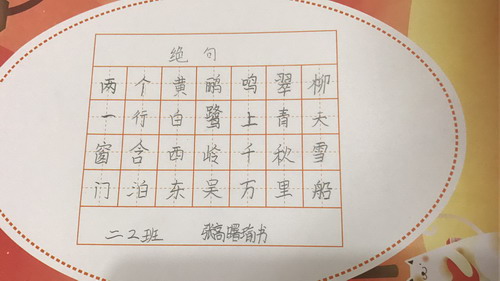 绝句
两个黄鹂鸣翠柳
一行白鹭上青天
窗含西岐千秋雪
门泊东吴万里船
二2班 张曙书